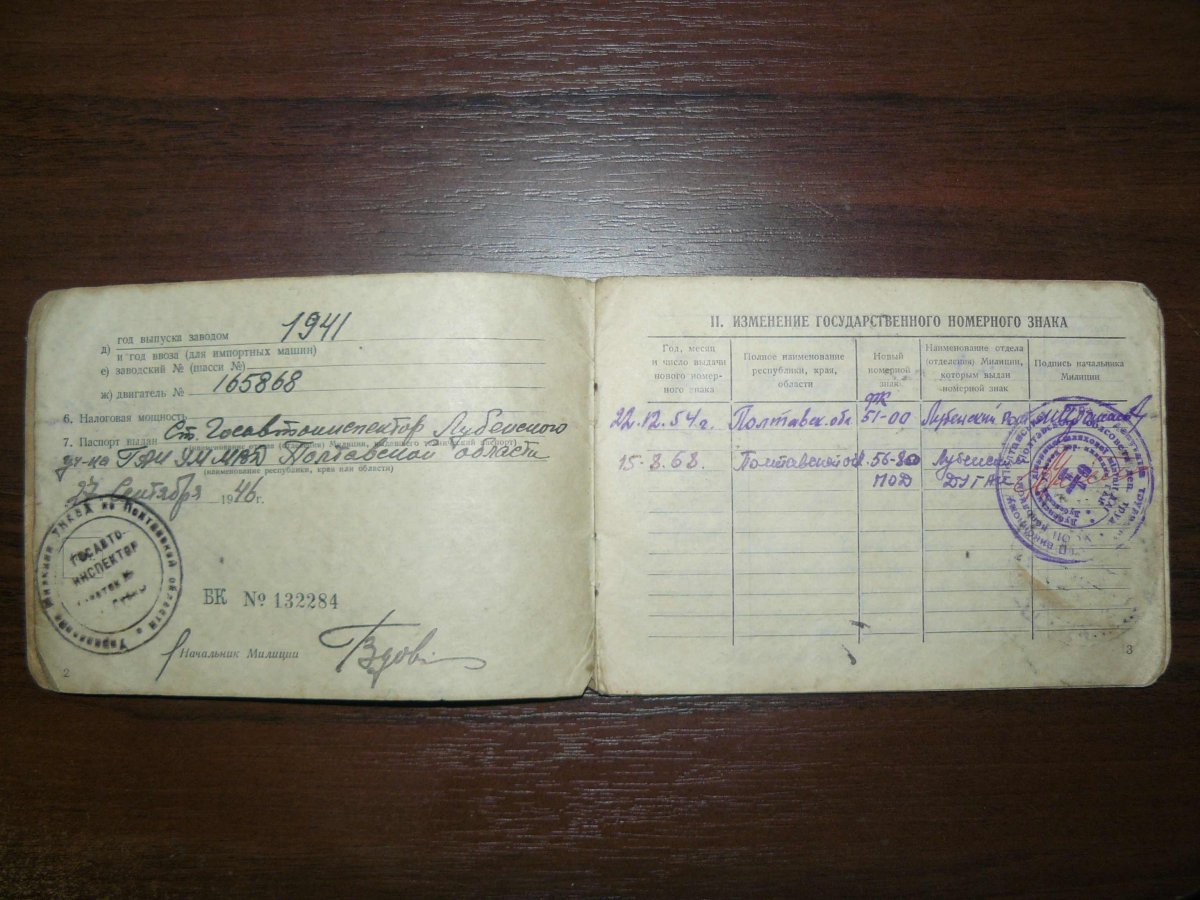 д) год выпуска заводом 1941
и год ввоза (для импортных машин)
е) заводский № (шасси №)
ж) двигатель № 165868
6. Налоговая мощность
7. Паспорт выдан Ст. Госавтоинспектор Лубенского
(наименование отдела (отделения) Милиции, выдавшего технический паспорт)
уч-ка ГАИ Полтавской области
(наименование республики, края или области)
27 Сентября 1946 г.
ГОСАВТО-
ИНСПЕКТОР
Полтавской области
БК № 132284
Начальник Милиции
2
II. ИЗМЕНЕНИЕ ГОСУДАРСТВЕННОГО НОМЕРНОГО ЗНАКА
Год, месяц и число выдачи нового номерного знака
Полное наименование республики, края, области
Новый номерной знак
Наименование отдела (отделения) Милиции, которым выдан номерной знак
Подпись начальника Милиции
22.12.54 г. Полтавск. об. ФК 51-00 Лубенский
15-8.68. Полтавской Лубенский
ПОД
3